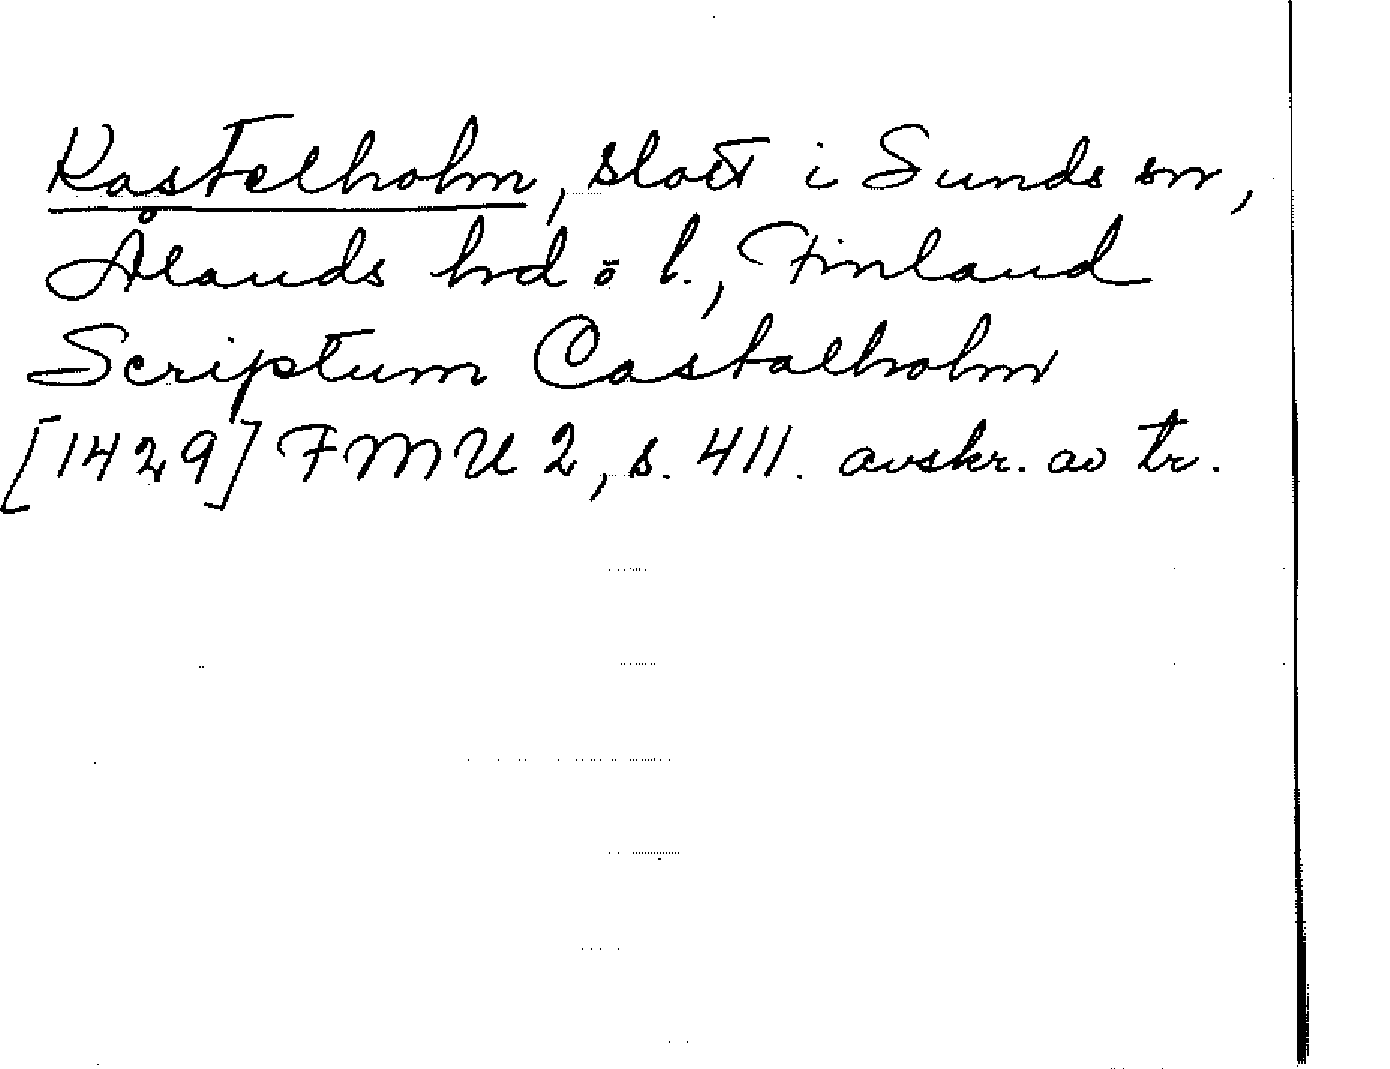 Kastelholm, slott i Sunds sn,
Ålands hrd o l., Finland
Scriptum Castalholm
[1429] FMU 2, s. 411. avskr. av tr.